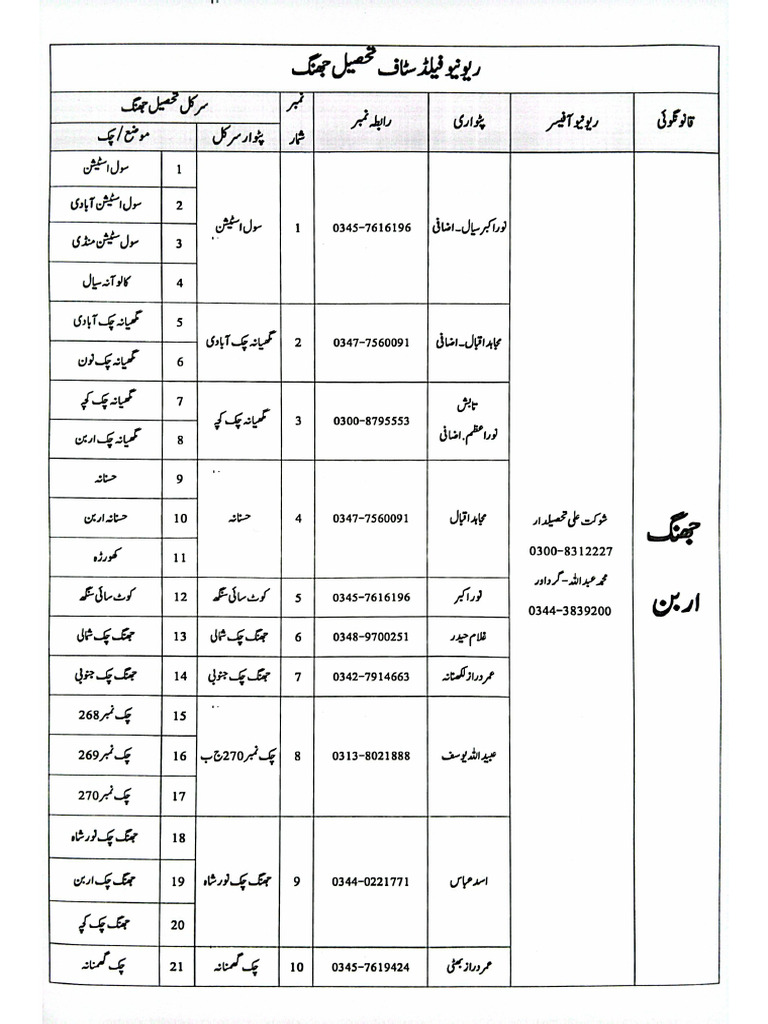 ریونیو فیلڈ سٹاف تحصیل جھنگ
قانونگوئی ریونیو آفیسر پٹواری رابطہ نمبر نمبر شمار سرکل تحصیل جھنگ
پٹوار سرکل موضع / چک
جھنگ اربن
شوکت علی تحصیلدار
0300-8312227
محمد عبداللہ - گرداور
0344-3839200
نور اکبر سیال - اضافی 0345-7616196 1 سول اسٹیشن 1 سول اسٹیشن
2 سول اسٹیشن آبادی
3 سول سٹیشن منڈی
4 کالو آنہ سیال
مجاہد اقبال - اضافی 0347-7560091 2 گھیانہ چک آبادی 5 گھیانہ چک آبادی
6 گھیانہ چک نون
تابش نور اعظم . اضافی 0300-8795553 3 گھیانہ چک کچہ 7 گھیانہ چک کچہ
8 گھیانہ چک اربن
مجاہد اقبال 0347-7560091 4 حسنانہ 9 حسنانہ
10 حسنانہ اربن
11 کھورڑہ
نور اکبر 0345-7616196 5 کوٹ سائی سنگھ 12 کوٹ سائی سنگھ
غلام حیدر 0348-9700251 6 جھنگ چک شمالی 13 جھنگ چک شمالی
عمر دراز لکھنانہ 0342-7914663 7 جھنگ چک جنوبی 14 جھنگ چک جنوبی
عبید اللہ یوسف 0313-8021888 8 چک نمبر 270 ج ب 15 چک نمبر 268
16 چک نمبر 269
17 چک نمبر 270
اسد عباس 0344-0221771 9 جھنگ چک نور شاہ 18 جھنگ چک نور شاہ
19 جھنگ چک اربن
20 جھنگ چک کچہ
عمر دراز بھٹی 0345-7619424 10 چک گھمنانہ 21 چک گھمنانہ